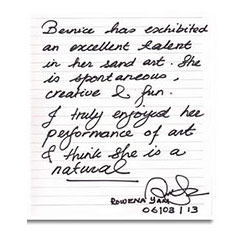 Bernice has exhibited
an excellent talent
in her sand art. She
is spontaneous,
creative & fun.
I truly enjoyed her
performance of art
& think she is a
natural
ROWENA
06/03/13